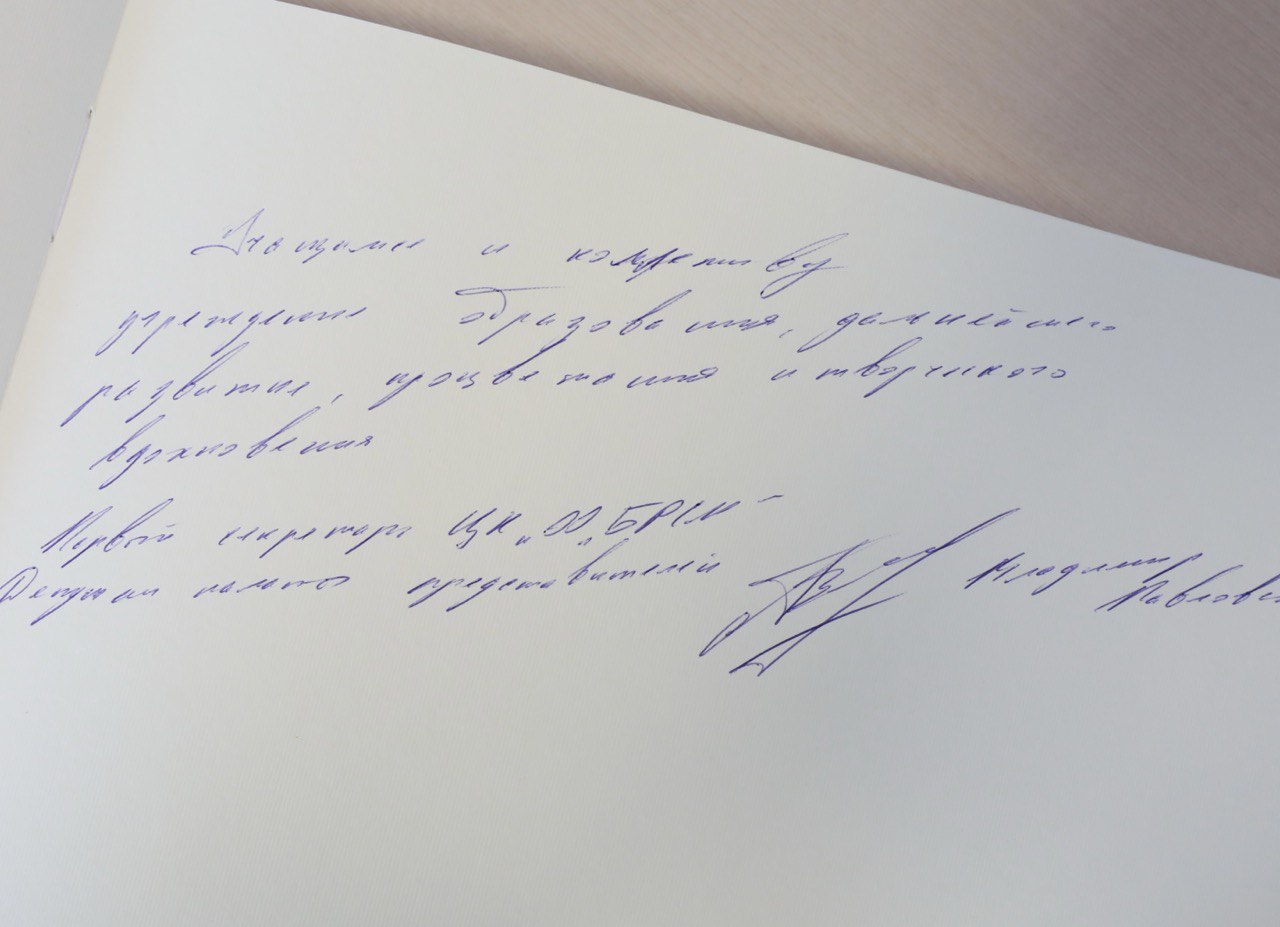 Учащимся и коллективу
учреждения образования, дальнейшего
развития, процветания и творческого
вдохновения
Первый секретарь ЦК "ОО "БРСМ" -
Депутат палаты представителей Владимир
Павловский